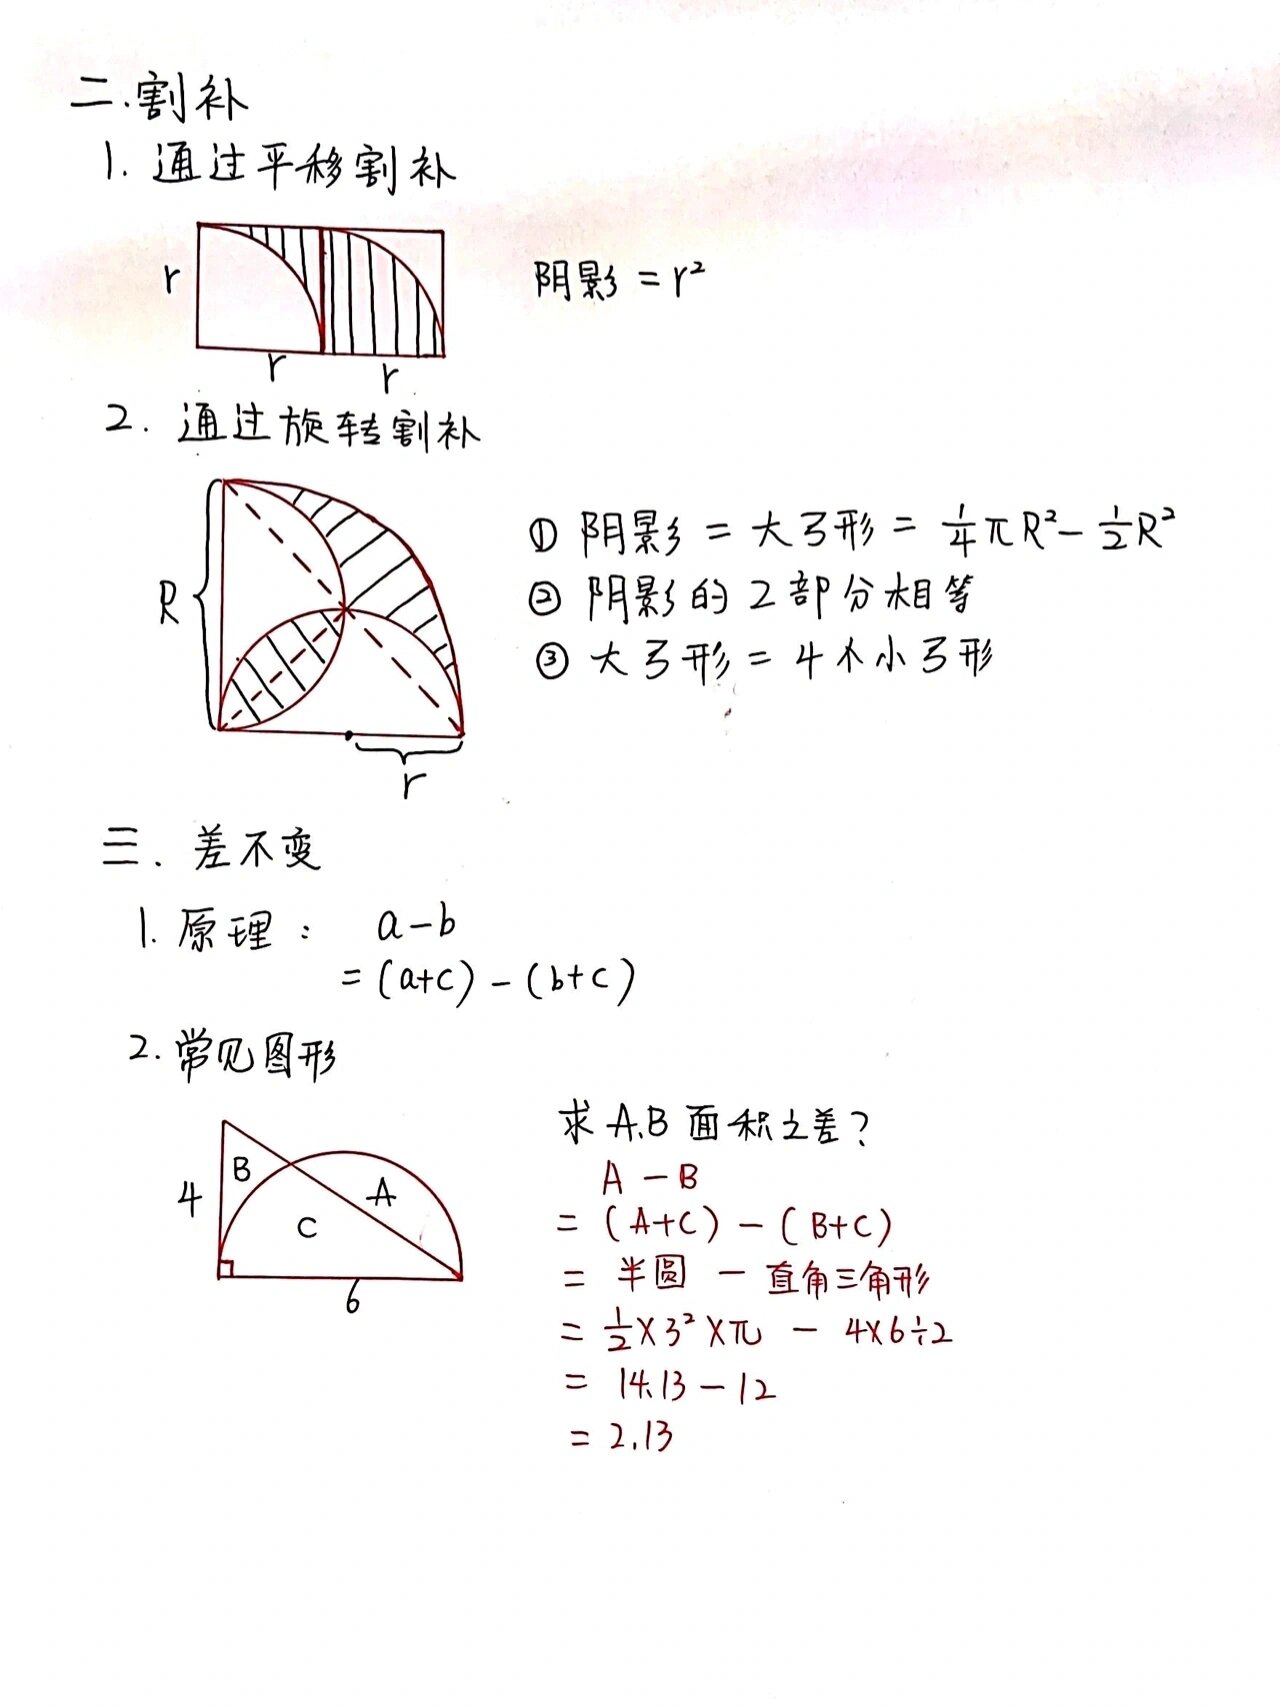 二.割补
1. 通过平移割补
r
阴影 = r²
r
r
2. 通过旋转割补
R
① 阴影 = 大弓形 = 1/4 πR² - 1/2 R²
② 阴影的2部分相等
③ 大弓形 = 4个小弓形
r
三. 差不变
1. 原理: a-b
= (a+c) - (b+c)
2. 常见图形
求A.B面积之差?
4
B
A
C
6
A - B
= (A+C) - (B+C)
= 半圆 - 直角三角形
= 1/2 × 3² × π - 4×6÷2
= 14.13 - 12
= 2.13